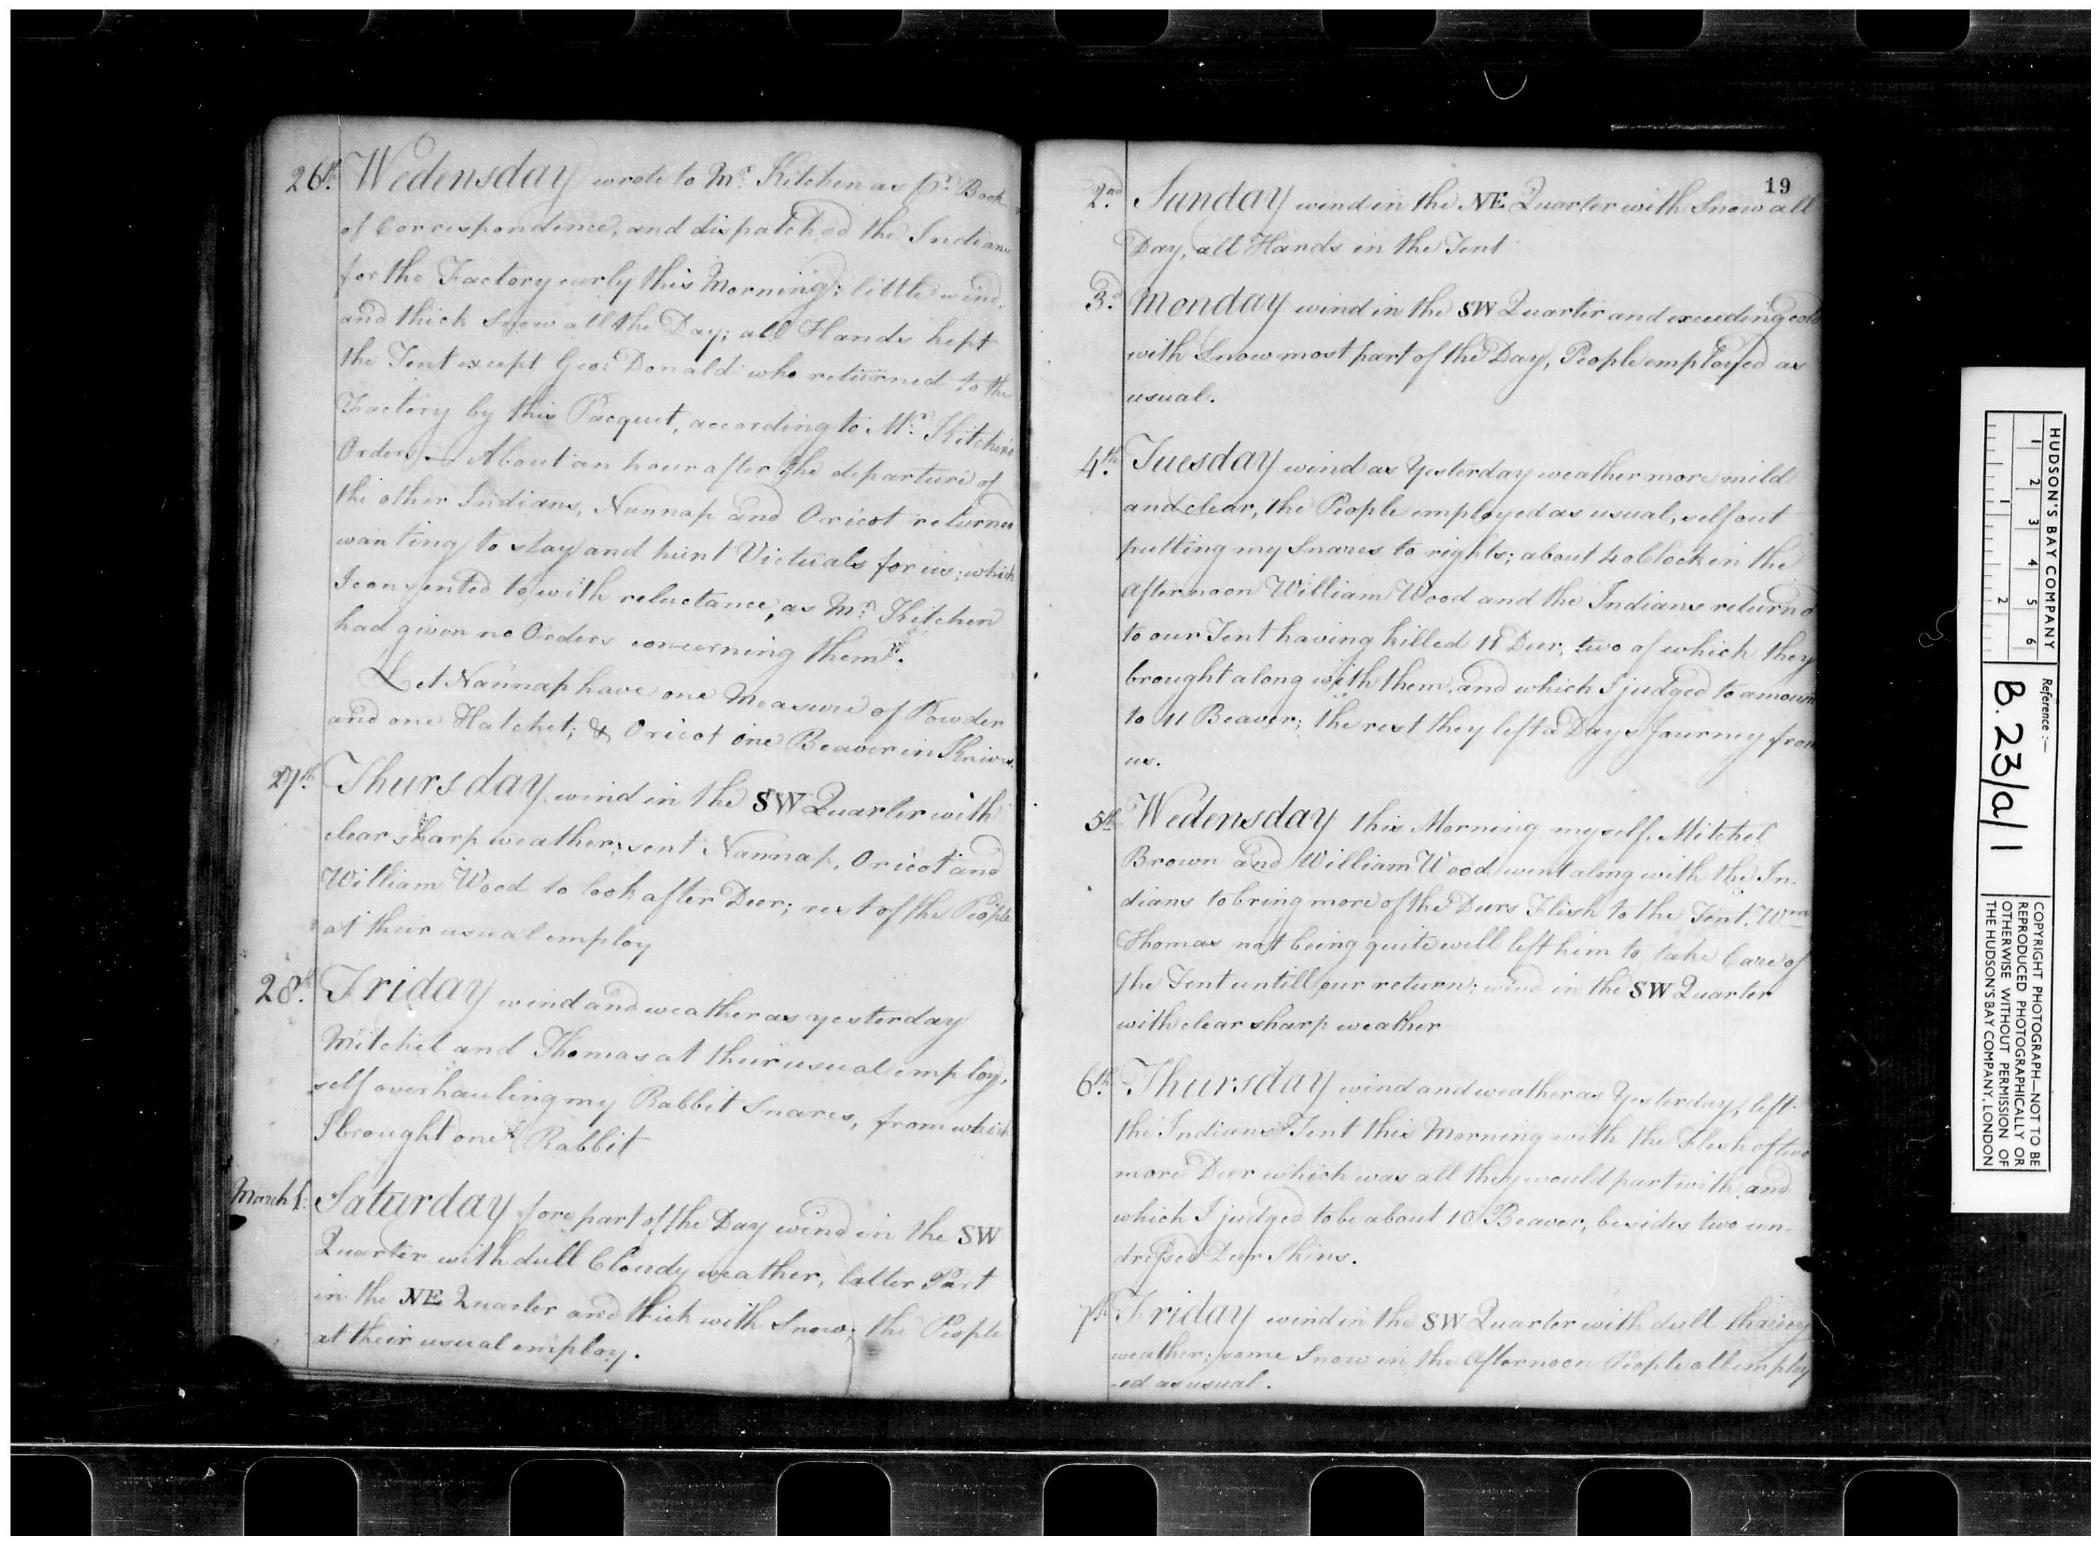 26th. Wedensday wrote to Mr. Kitchen as pr. Book
of Correspondence, and dispatched the Indians
for the Factory early this Morning; little wind,
and thick Snow all the Day; all Hands kept
the Tent except Geo: Donald who returned to the
Factory by this Pacquet, according to Mr. Kitchens
Orders — About an hour after the departure of
the other Indians, Nannap and Oricot returned
wanting to stay and hunt Victuals for us; which
I consented to with reluctance, as Mr. Kitchen
had given no Orders concerning them.
Let Nannap have one Measure of Powder
and one Hatchet; & Oricot one Beaver in Knives.
27th. Thursday wind in the SW Quarter with
clear sharp weather; sent Nannap, Oricot and
William Wood to look after Deer; rest of the People
at their usual employ
28th. Friday wind and weather as yesterday
Mitchel and Thomas at their usual employ,
self overhauling my Rabbit Snares, from which
I brought one Rabbit
March 1. Saturday fore part of the Day wind in the SW
Quarter with dull Cloudy weather, latter Part
in the NE Quarter and thick with Snow; the People
at their usual employ.
19
2nd. Sunday wind in the NE Quarter with Snow all
Day, all Hands in the Tent
3d. Monday wind in the SW Quarter and exceeding cold
with Snow most part of the Day, People employed as
usual.
4th. Tuesday wind as Yesterday weather more mild
and clear, the People employed as usual, self out
putting my Snares to rights; about 4 oClock in the
Afternoon William Wood and the Indians returnd
to our Tent having killed 11 Deer, two of which they
brought along with them, and which I judged to amount
to 11 Beaver; the rest they left a Days Journey from
us.
5th. Wedensday this Morning myself, Mitchel
Brown and William Wood went along with the In-
dians to bring more of the Deers Flesh to the Tent. Wm
Thomas not being quite well left him to take Care of
the Tent untill our return; wind in the SW Quarter
with clear sharp weather
6th. Thursday wind and weather as Yesterday, left
the Indians Tent this Morning with the Flesh of two
more Deer which was all they would part with, and
which I judged to be about 10 Beaver, besides two un-
dressed Deer Skins.
7th. Friday wind in the SW Quarter with dull
weather; some Snow in the Afternoon People all employ
-ed as usual.
HUDSON'S BAY COMPANY
1 2 3 4 5 6
1 2
Reference:—
B.23/a/1
COPYRIGHT PHOTOGRAPH—NOT TO BE
REPRODUCED PHOTOGRAPHICALLY OR
OTHERWISE WITHOUT PERMISSION OF
THE HUDSON'S BAY COMPANY, LONDON